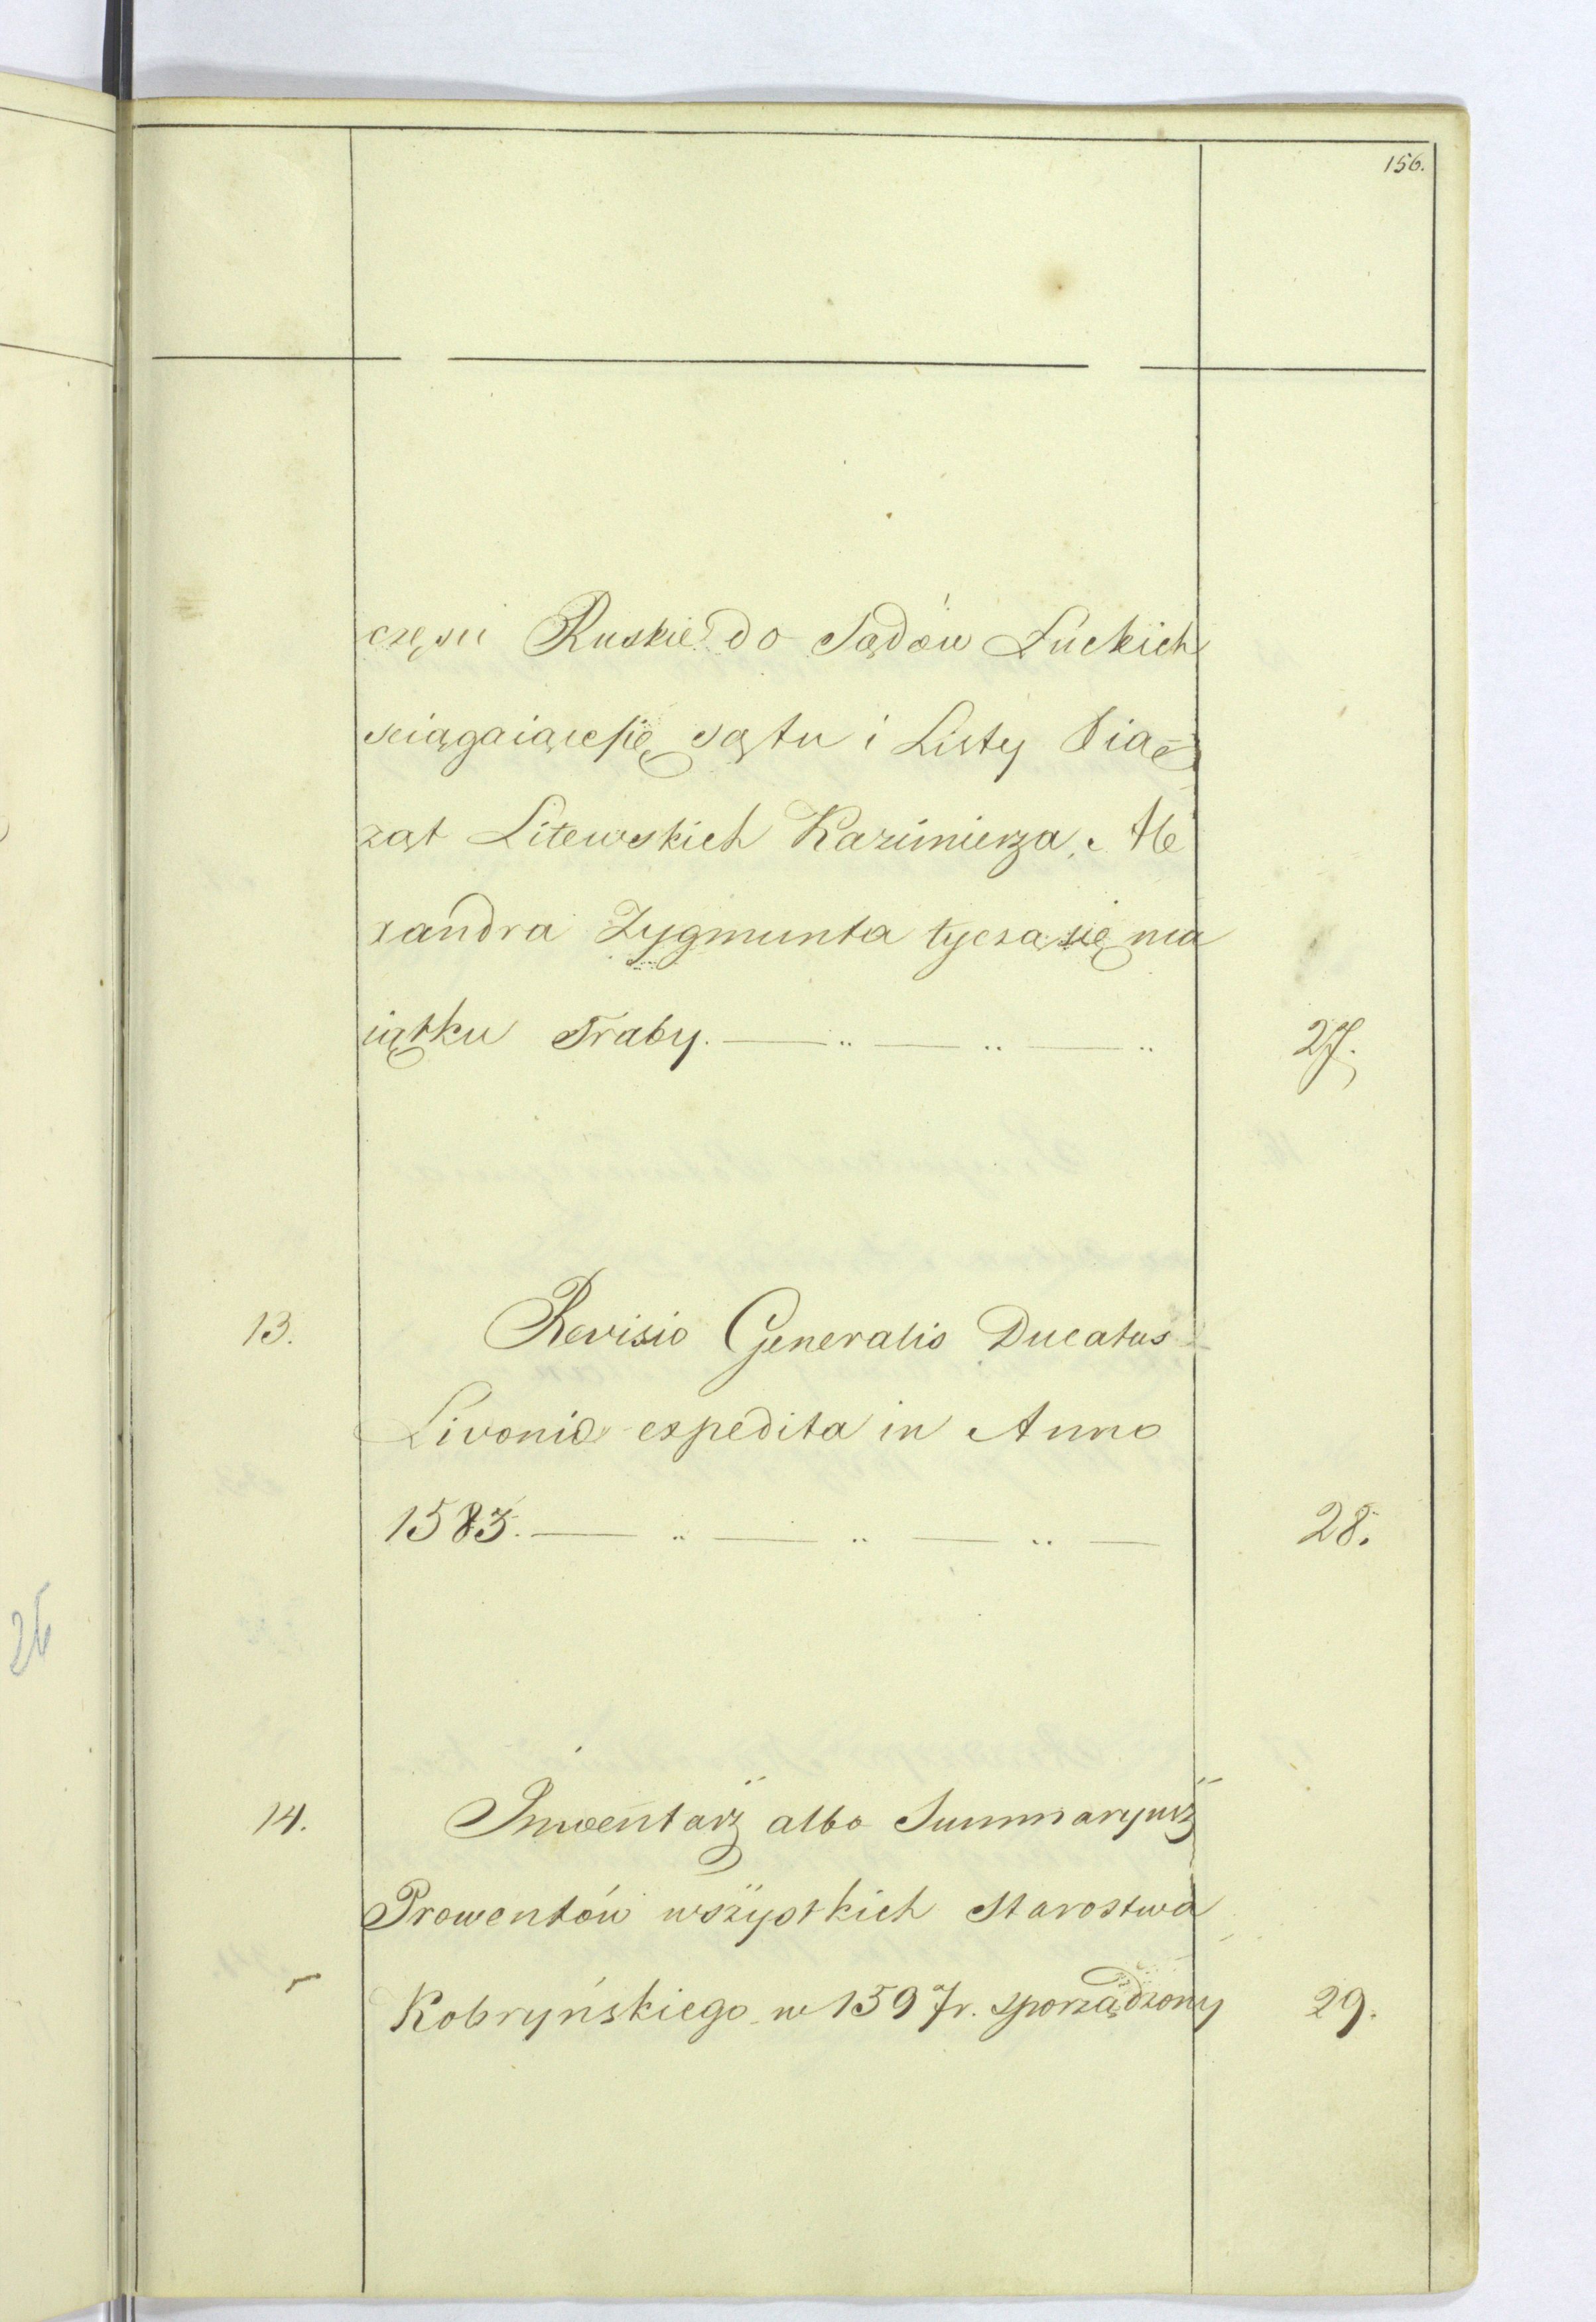 156.
częsci Ruskie do Sądów Łuckich
sciągaiącesię są tu i Listy Xiąe
żąt Litewskich Kazimierza, Ale
xandra Zygmunta tyczą się ma
iątku Traby. 27.
13. Revisio Generalis Ducatus
Livoniæ expedita in Anno
1583. 28.
14. Inwentarz albo Summaryusz
Prowentów wszystkich Starostwa
Kobryńskiego w 1597 r. sporządzony 29.
26